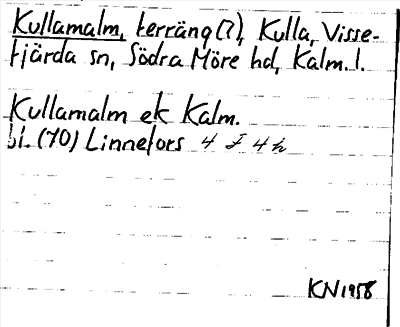 Kullamalm, terräng(?), Kulla, Visse-
fjärda sn, Södra Möre hd, Kalm. l.
Kullamalm ek Kalm.
bl. (70) Linnefors 4 F 4 h
KN 1958